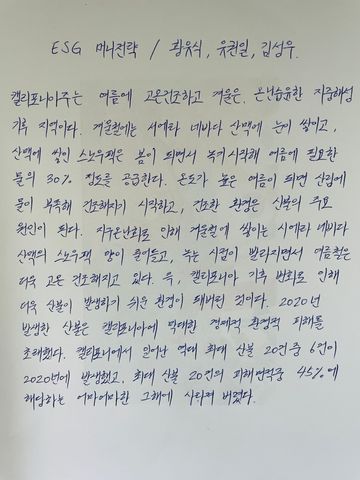 ESG 머니전략 / 황유식, 유권일, 김성우.
캘리포니아주는 여름에 고온건조하고 겨울은 온난습윤한 지중해성
기후 지역이다. 겨울철에는 시에라 네바다 산맥에 눈이 쌓이고,
산맥에 쌓인 스노우팩은 봄이 되면서 녹기 시작해 여름에 필요한
물의 30% 정도를 공급한다. 온도가 높은 여름이 되면 산림에
물이 부족해 건조해지기 시작하고, 건조한 환경은 산불의 주요
원인이 된다. 지구온난화로 인해 겨울철에 쌓이는 시에라 네바다
산맥의 스노우팩 양이 줄어들고, 녹는 시점이 빨라지면서 여름철은
더욱 고온 건조해지고 있다. 즉, 캘리포니아 기후 변화로 인해
더욱 산불이 발생하기 쉬운 환경이 돼버린 것이다. 2020년
발생한 산불은 캘리포니아에 막대한 경제적 환경적 피해를
초래했다. 캘리포니에서 일어난 역대 최대 산불 20건 중 6건이
2020년에 발생했고, 최대 산불 20건의 피해면적중 45%에
해당하는 어마어마한 그해에 사라져 버렸다.